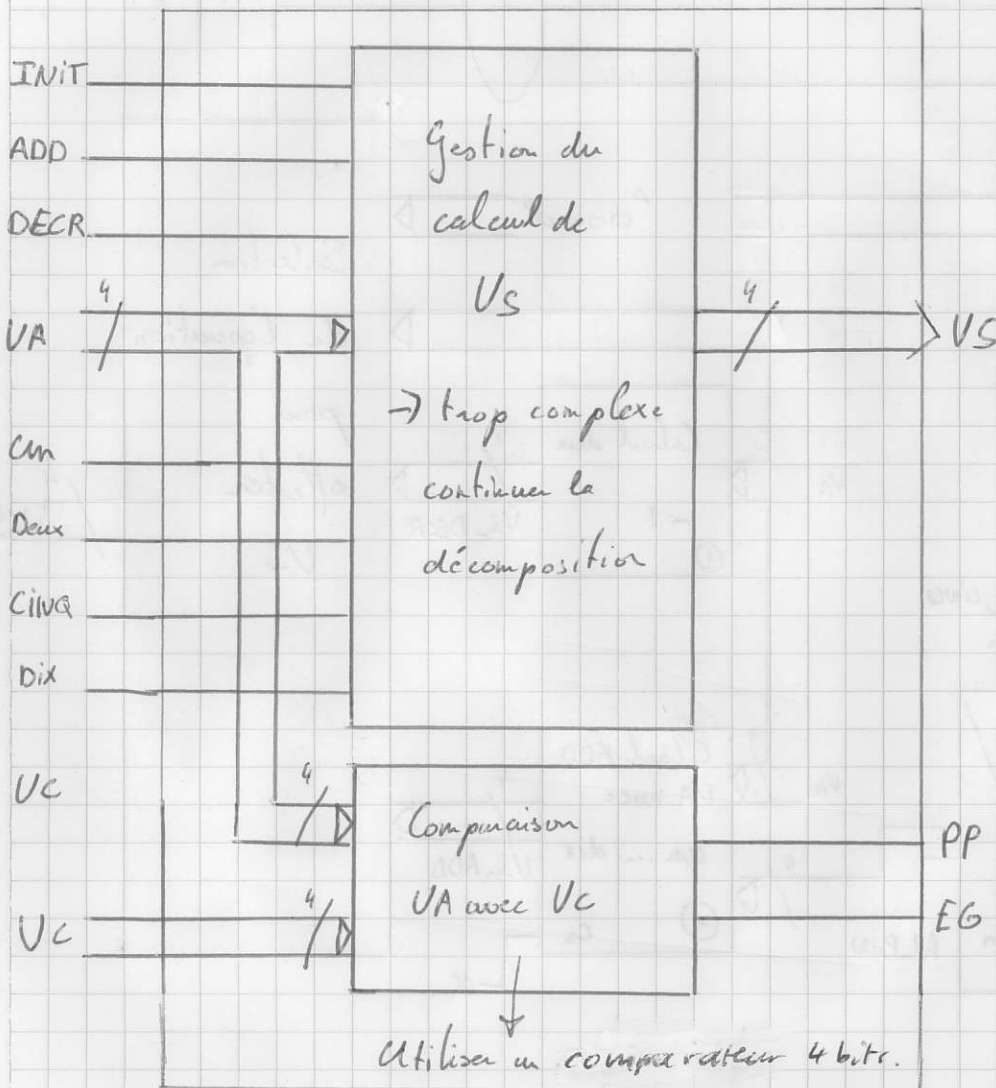 INIT
ADD
DECR
4
VA
Un
Deux
CINQ
Dix
Gestion du
calcul de
VS
→ trop complexe
continuer la
décomposition
4
VS
VC
4
VC
4
Comparaison
VA avec VC
PP
EG
Utiliser un comparateur 4 bits.